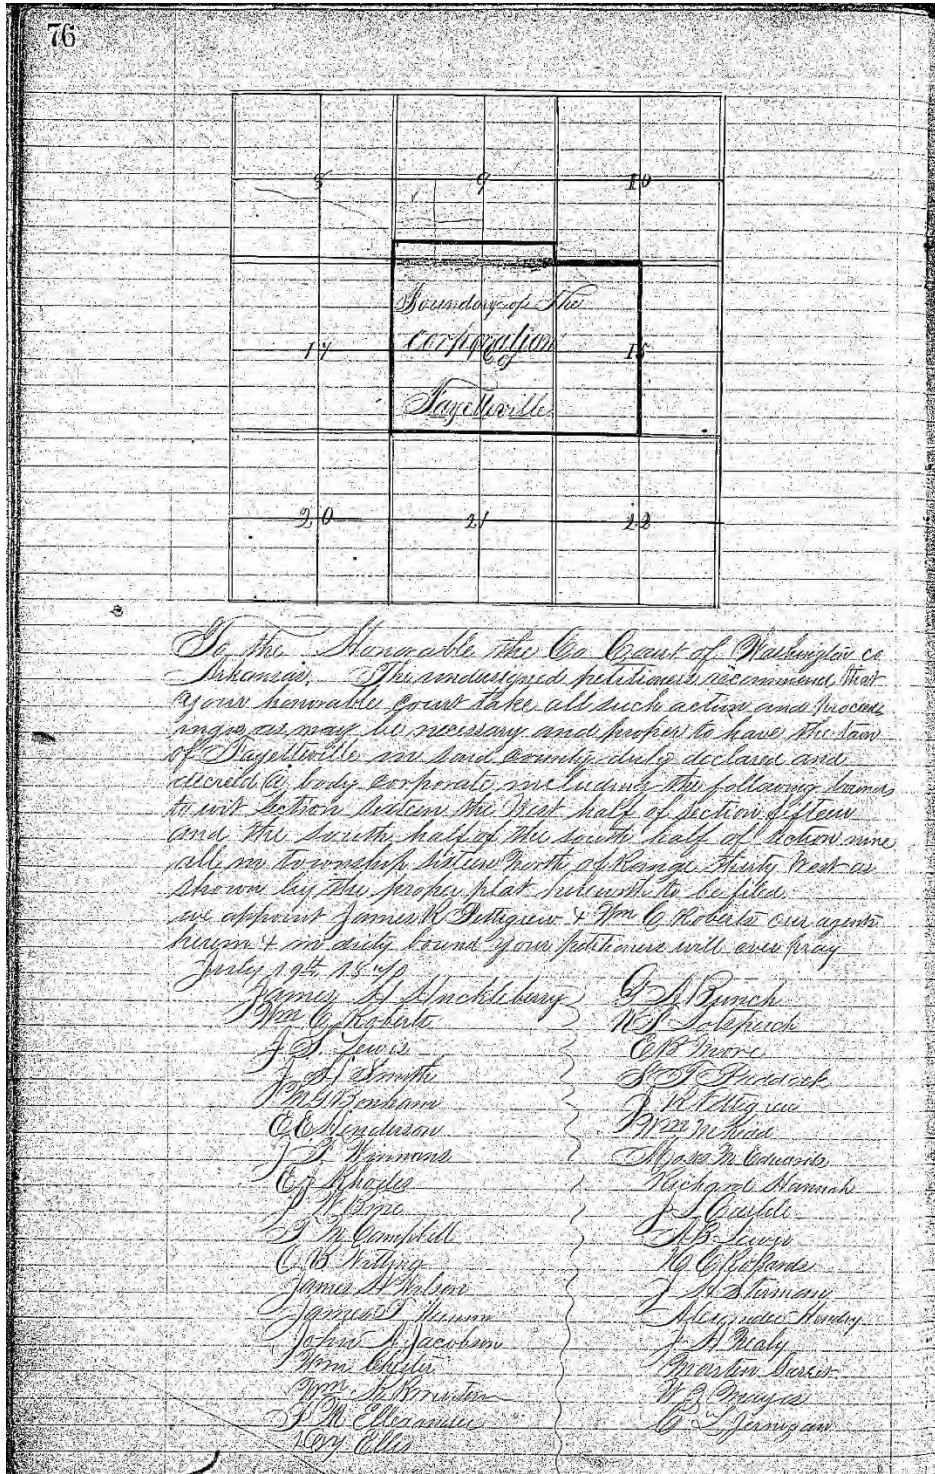 76
8 9 10
Boundary of the
corporation
17 15
of
Fayetteville
20 21 22
To the Honorable the Co Court of Washington co
Arkansas. The undersigned petitioners recommend that
your honorable court take all such action and proceed
ings as may be necessary and proper to have the town
of Fayetteville in said county duly declared and
decreed a body corporate, including the following bounds
to wit Section sixteen the West half of Section fifteen
and the south half of the south half of Section nine
all in township sixteen North of Range thirty West as
shown by the proper plat herewith to be filed.
we appoint James R Pettigrew & Wm C. Roberts our agents
herein & in duty bound your petitioners will ever pray
July 19th 1870
James H Huckleberry
Wm C. Roberts
J. S. Lewis
J. H. Smith
M Bonham
E E Henderson
J. Winnans
Rhodes
J W
T. M Campbell
C B
James H Wilson
James T.
John A Jacobson
Wm Chester
Wm
T M
Ellis
Bunch
N. S.
E B Moore
S. T. Paddock
J R Pettigrew
Wm M
Moses M Edwards
Richard Hannah
J. L. Carlile
A B Lewis
J. H. Stirman
Alexander Hendry
J. H.
W. Z. Mayes
C L Jernigan